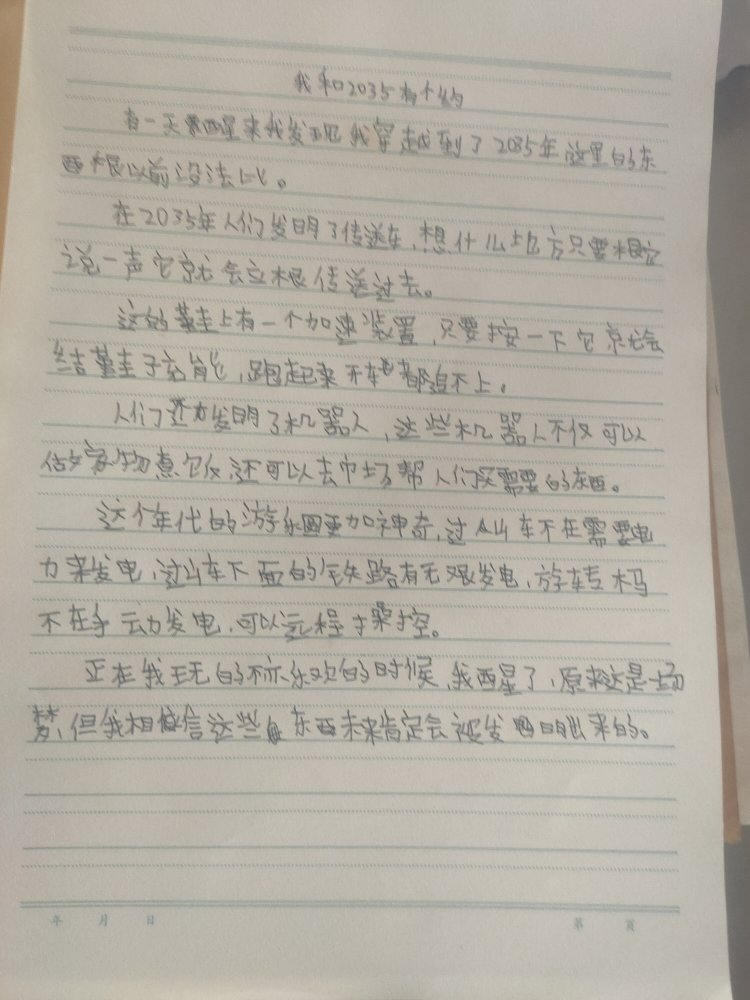 我和2035有个约
有一天醒来我发现我穿越到了2035年这里的东
西根以前没法比。
在2035年人们发明了传送车,想什么地方只要根它
说一声它就会立根传送过去。
这的鞋上有一个加速装置,只要按一下它就会
给鞋子充能,跑起来开车都追不上。
人们还发明了机器人,这些机器人不仅可以
做家物煮饭还可以去市场帮人们买需要的东西。
这个年代的游乐园更加神奇,过山车不在需要电
力来发电,过山车下面的铁路有无限发电,旋转木马
不在手动发电,可以远程手操控。
正在我玩的不亦乐欢的时候,我醒了,原来这是一场
梦,但我相信这些东西未来肯定会被发明出来的。
年 月 日
第 页